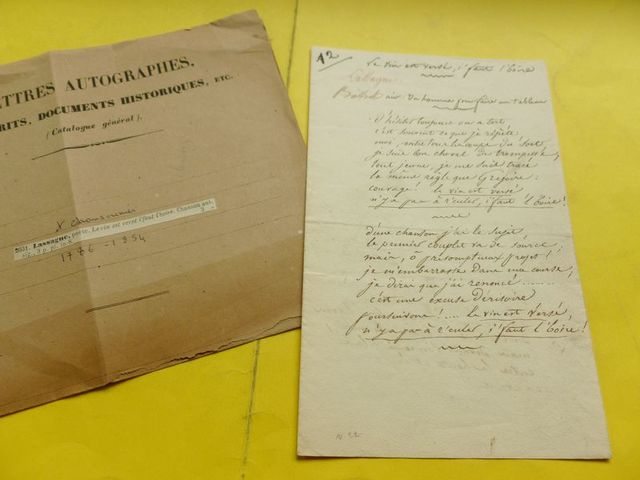 LETTRES AUTOGRAPHES,
MANUSCRITS, DOCUMENTS HISTORIQUES, ETC.
(Catalogue général).
chansonnier
2031. Lassagne, poète. Le vin est versé, il faut l'boire. Chanson aut.
1776-1854
12
Le vin est versé, i' faut l'boire
air: un homme pour faire un tableau
D'hésiter toujours on a tort
c'est souvent ce que je répète,
moi, contre tous les coups du sort,
je suis bon cheval de trompette;
tout jeune, je me suis tracé
la même règle que Grégoire:
courage! le vin est versé
n'y a pas à r'culer, i' faut l'boire!
d'une chanson j'ai le sujet
le premier couplet va de source;
mais, ô présomptueux projet!
je m'embarrasse dans ma course,
je dirai que j'ai renoncé.......
c'est une excuse dérisoire
poursuivons!.... le vin est versé,
n'y a pas à r'culer, i' faut l'boire!